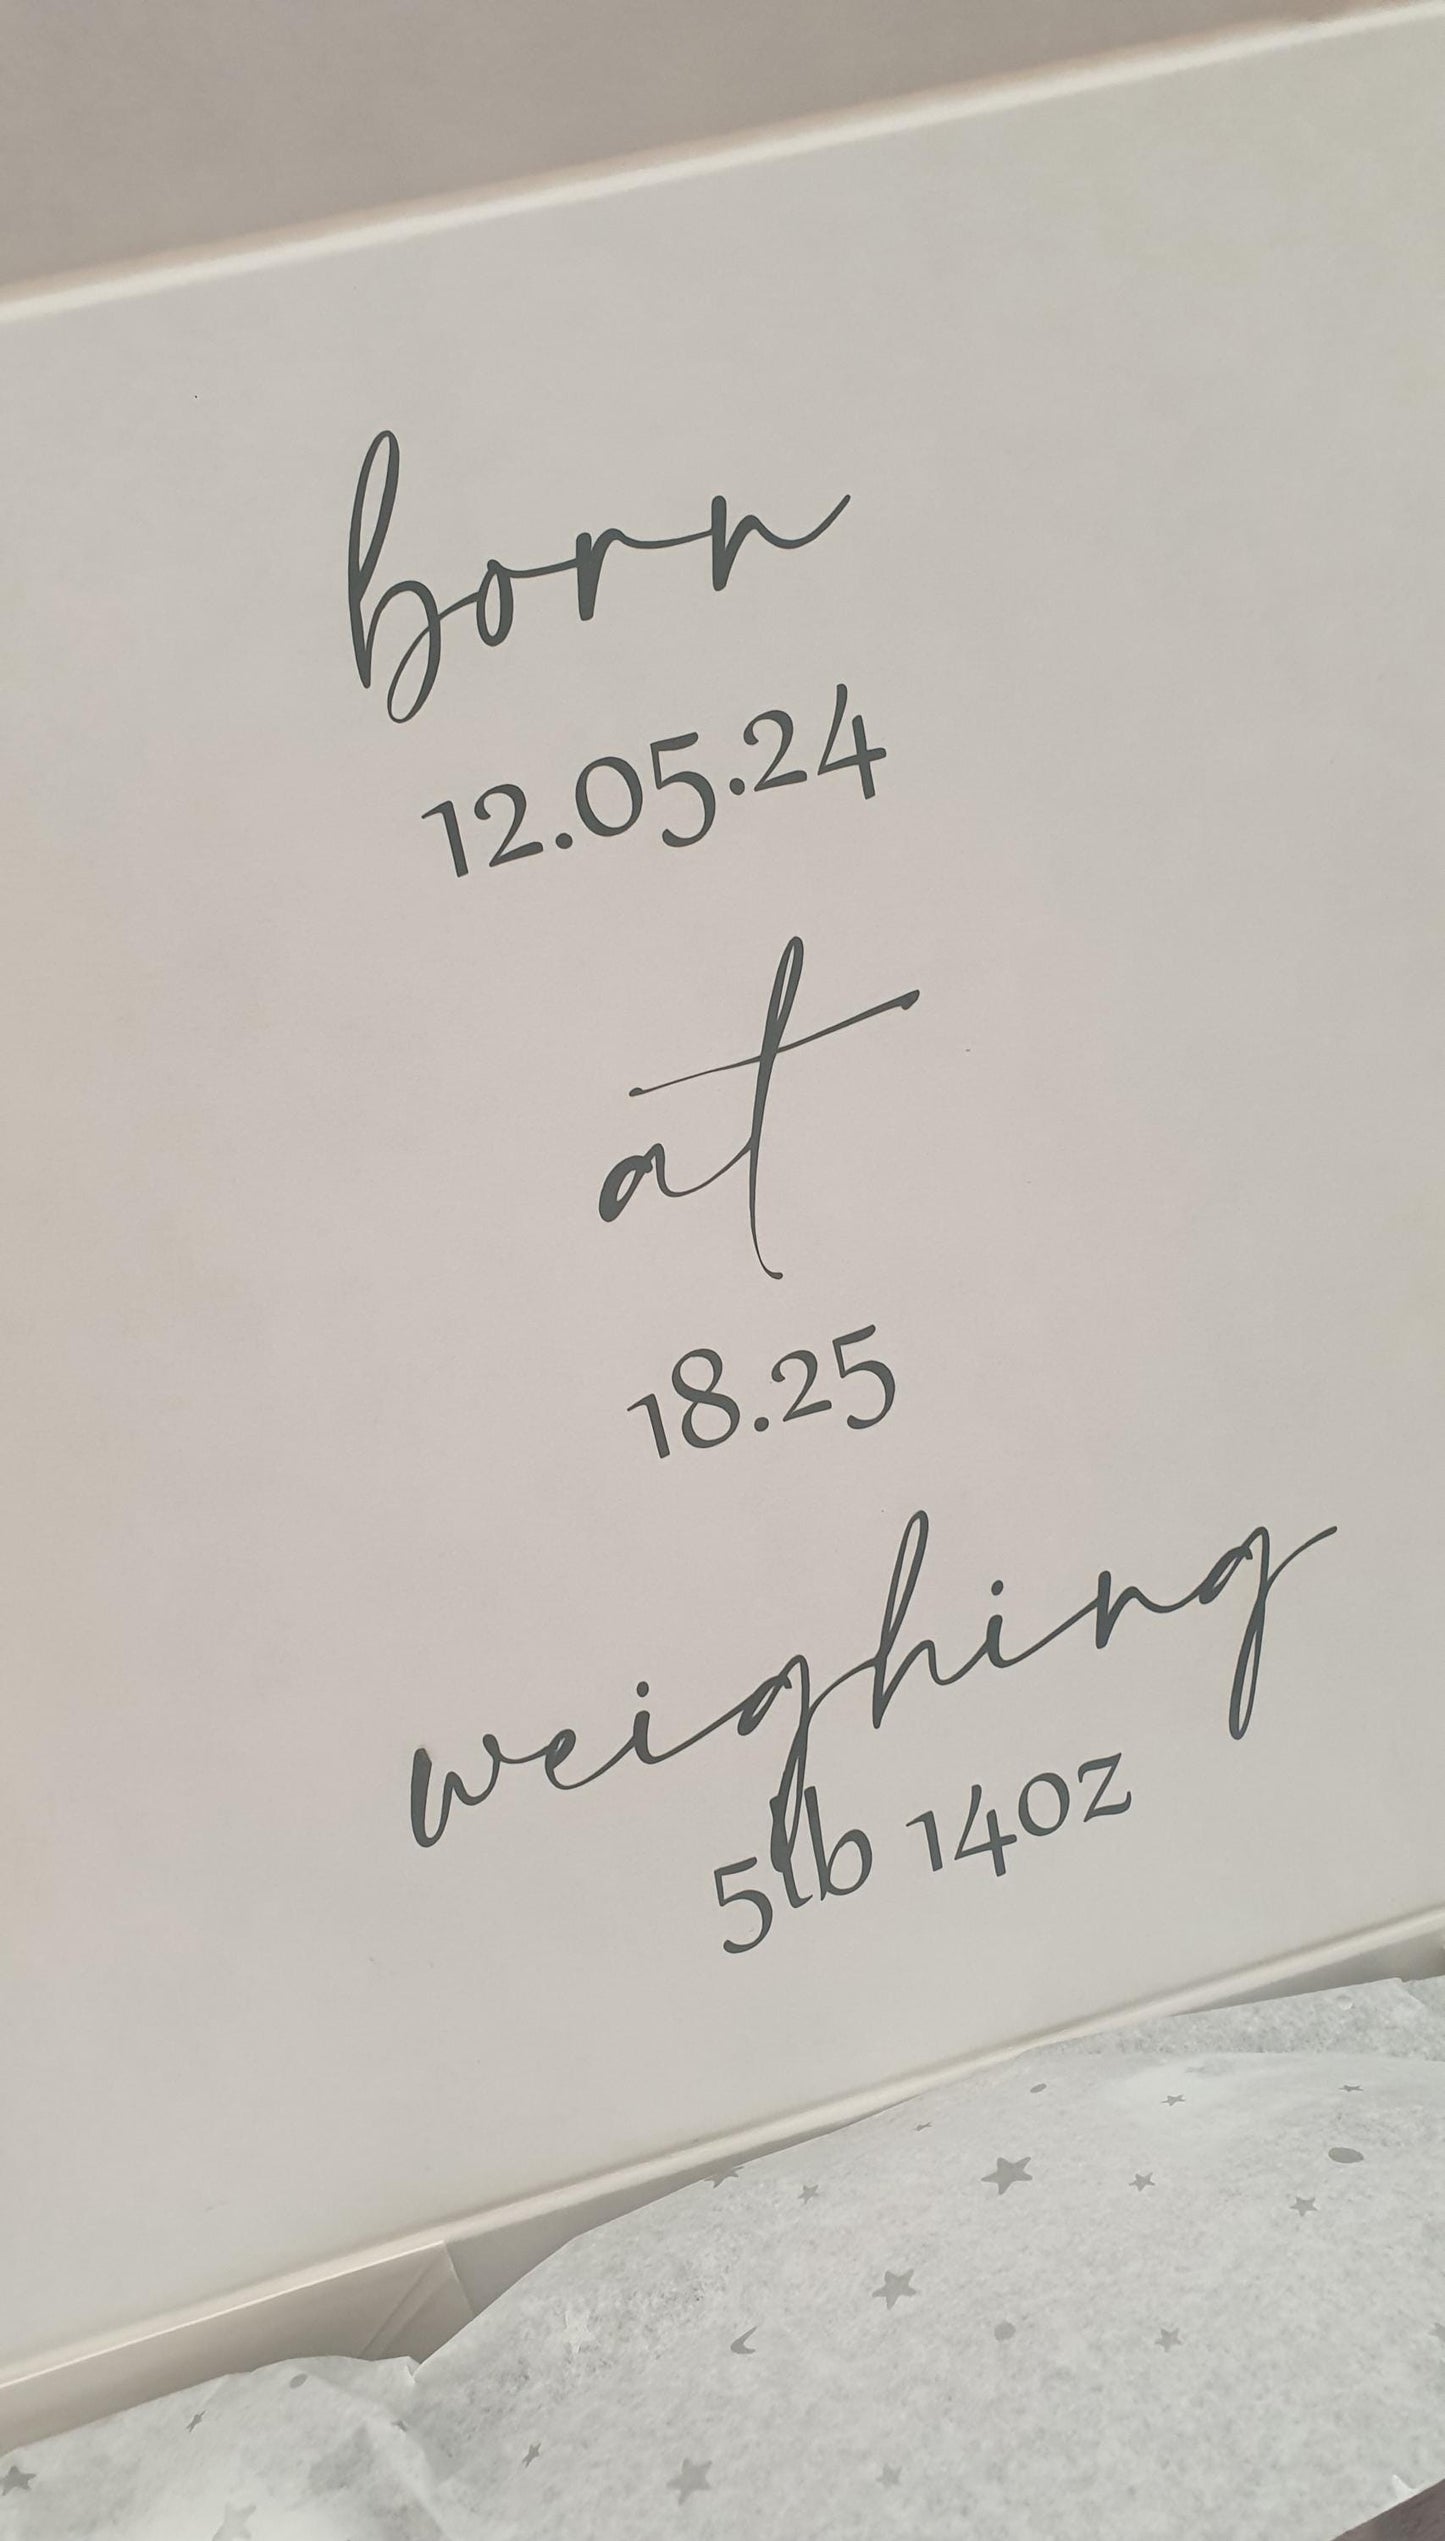 born
12.05.24
at
18.25
weighing
5lb 14oz